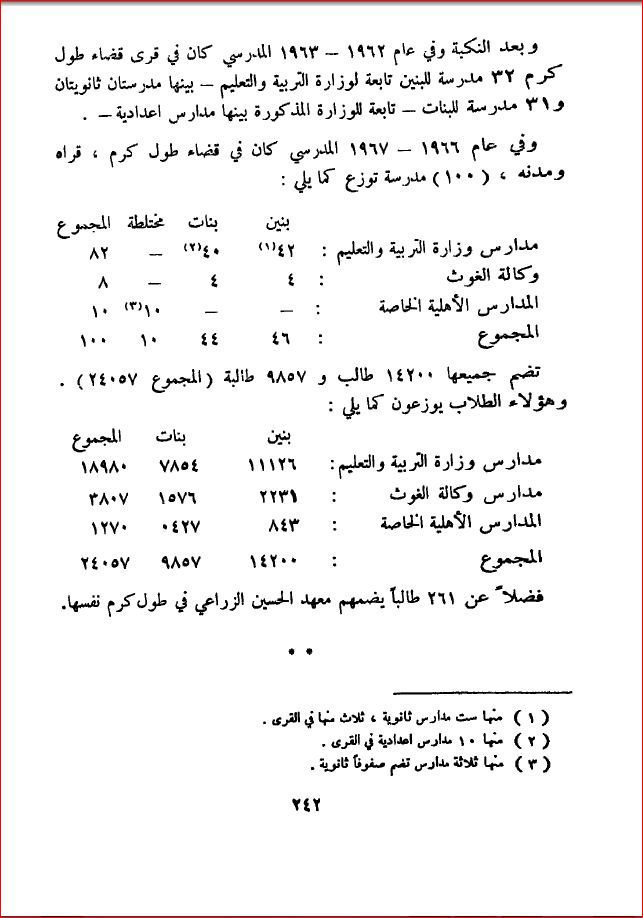 وبعد النكبة وفي عام ١٩٦٢ – ١٩٦٣ المدرسي كان في قرى قضاء طول
كرم ٣٢ مدرسة للبنين تابعة لوزارة التربية والتعليم – بينها مدرستان ثانويتان
و٣١ مدرسة للبنات – تابعة للوزارة المذكورة بينها مدارس اعدادية – .
وفي عام ١٩٦٦ – ١٩٦٧ المدرسي كان في قضاء طول كرم ، قراه
ومدنه ، (١٠٠) مدرسة توزع كما يلي :
بنين بنات مختلطة المجموع
مدارس وزارة التربية والتعليم : ٤٢(١) ٤٠(٢) – ٨٢
وكالة الغوث : ٤ ٤ – ٨
المدارس الأهلية الخاصة : – – ١٠(٣) ١٠
المجموع : ٤٦ ٤٤ ١٠ ١٠٠
تضم جميعها ١٤٢٠٠ طالب و ٩٨٥٧ طالبة (المجموع ٢٤٠٥٧) .
وهؤلاء الطلاب يوزعون كما يلي :
بنين بنات المجموع
مدارس وزارة التربية والتعليم: ١١١٢٦ ٧٨٥٤ ١٨٩٨٠
مدارس وكالة الغوث : ٢٢٣١ ١٥٧٦ ٣٨٠٧
المدارس الأهلية الخاصة : ٨٤٣ ٠٤٢٧ ١٢٧٠
المجموع : ١٤٢٠٠ ٩٨٥٧ ٢٤٠٥٧
فضلاً عن ٢٦١ طالباً يضمهم معهد الحسين الزراعي في طول كرم نفسها.
* *
(١) منها ست مدارس ثانوية ، ثلاث منها في القرى .
(٢) منها ١٠ مدارس اعدادية في القرى .
(٣) منها ثلاثة مدارس تضم صفوفاً ثانوية .
٢٤٢